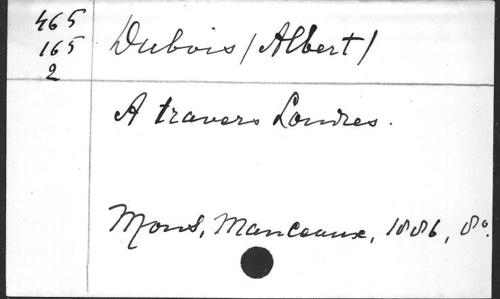 465
165
2
Dubois (Albert)
A travers Londres.
Mons, Manceaux, 1886, 8º.